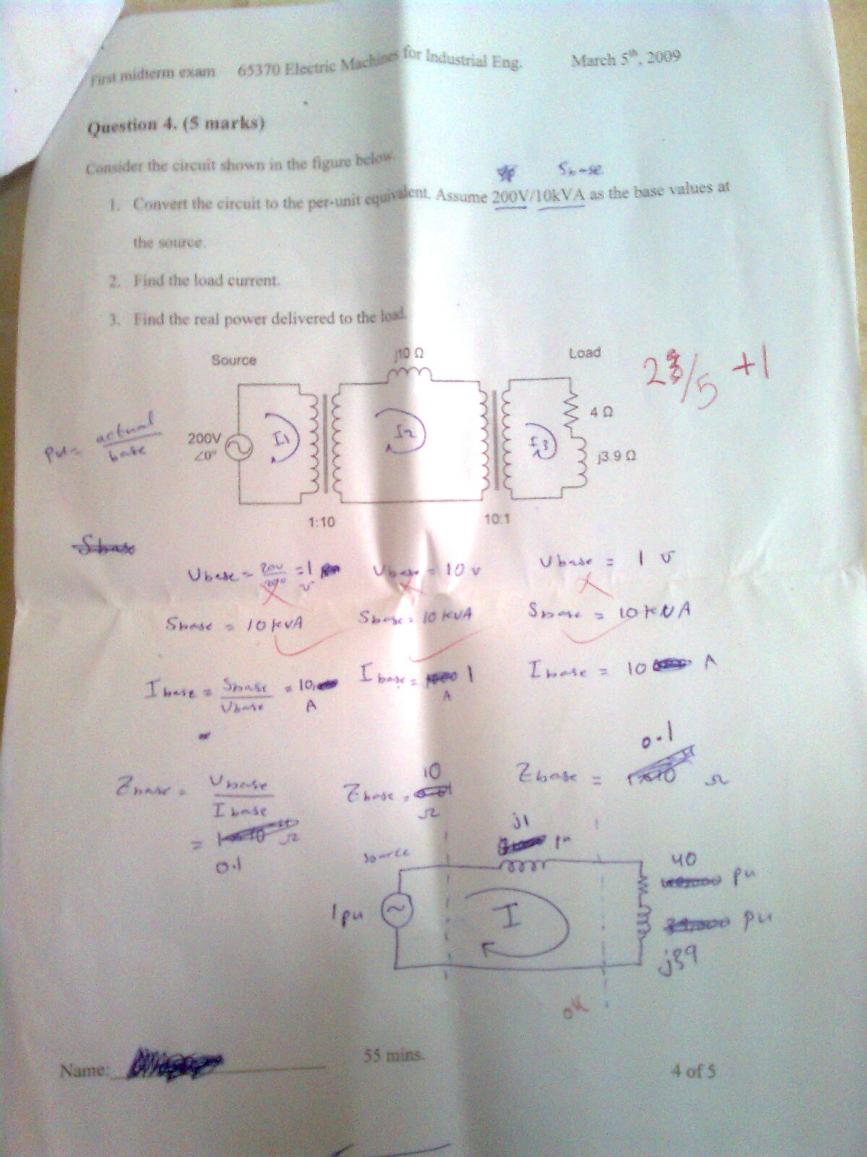 First midterm exam 65370 Electric Machines for Industrial Eng. March 5th, 2009
Question 4. (5 marks)
Consider the circuit shown in the figure below.
Sbase
1. Convert the circuit to the per-unit equivalent. Assume 200V/10kVA as the base values at
the source.
2. Find the load current.
3. Find the real power delivered to the load.
Source j10 Ω Load
2 3/5 +1
pu = actual / base
200V
∠0°
I1 I2 I3
4 Ω
j3.9 Ω
1:10 10:1
Sbase
Vbase = 200/200 = 1 V Vbase = 10 v Vbase = 1 v
Sbase = 10 kVA Sbase = 10 kVA Sbase = 10 kVA
Ibase = Sbase / Vbase = 10 A Ibase = 1 A Ibase = 10 A
Zbase = Vbase / Ibase Zbase = 10 Ω Zbase = 0.1 Ω
= Ω
0.1
source j1 pu
1 pu I 40 pu
pu
j39
ok
Name: 55 mins. 4 of 5